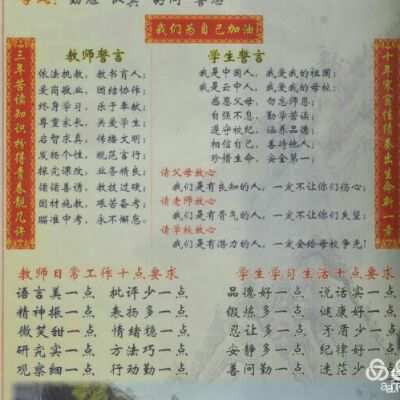 我们为自己加油
三年苦读知识
十年寒窗佳绩
教师誓言
依法执教，教书育人；
爱岗敬业，团结协作；
终身学习，乐于奉献；
尊重家长，关爱学生；
启智求真，传播文明；
发扬个性，规范言行；
探究课改，业善精良；
循循善诱，教技过硬；
因材施教，艰苦备考；
瞄准中考，永不懈怠。
学生誓言
我是中国人，我爱我的祖国；
我是云中人，我爱我的母校；
感恩父母，勿忘师恩；
自强不息，勤学苦读；
遵守校纪，涵养品德；
相信自己，善待他人；
珍惜生命，安全第一；
请父母放心
我们是有良知的人，一定不让你们伤心；
请老师放心
我们是有骨气的人，一定不让你们失望；
请学校放心
我们是有潜力的人，一定会给母校争光！
教师日常工作十点要求
语言美一点 批评少一点
精神振一点 表扬多一点
微笑甜一点 情绪稳一点
研究实一点 方法巧一点
观察细一点 行动勤一点
学生学习生活十点要求
品德好一点 说话实一点
锻炼多一点 健康好一点
忍让多一点 矛盾少一点
安静多一点 纪律好一点
善问勤一点 迷茫少一点